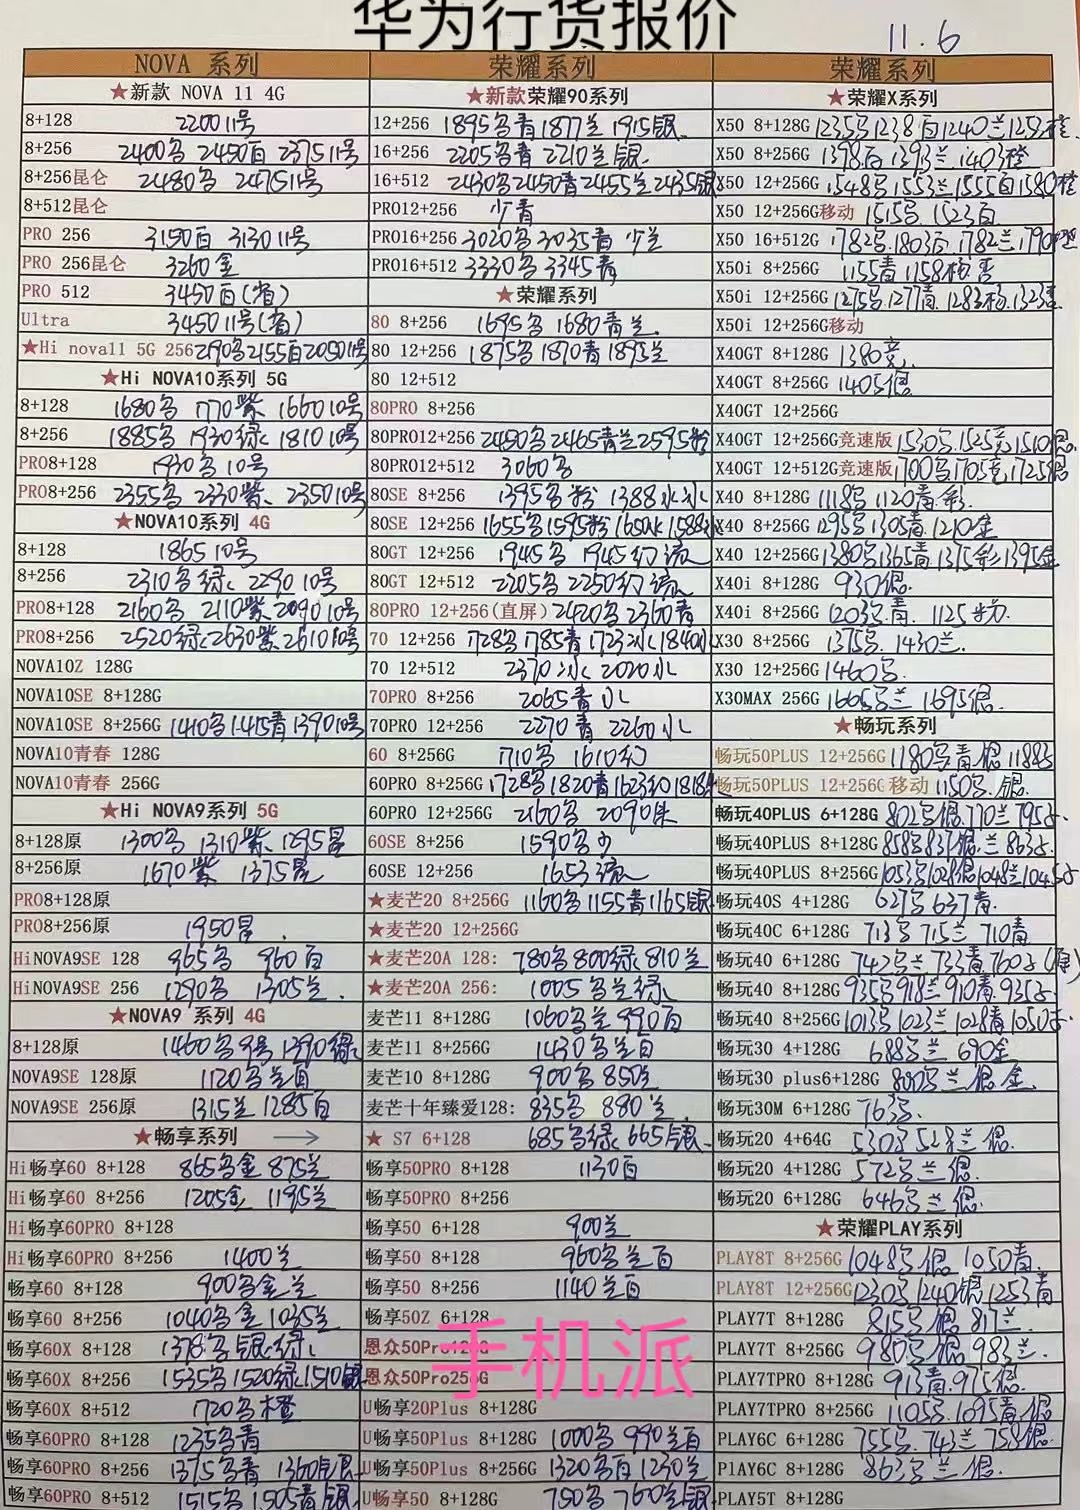 华为行货报价
11.6
NOVA 系列
★新款 NOVA 11 4G
8+128 2200 11号
8+256 2400多 2450百 2375 11号
8+256昆仑 2480多 2475 11号
8+512昆仑
PRO 256 3150百 3130 11号
PRO 256昆仑 3260金
PRO 512 3450百
Ultra 3450 11号
★Hi nova11 5G 256
★Hi NOVA10系列 5G
8+128 1680多 1660 10号
8+256 1885多 1930绿 1810 10号
PRO8+128 1930多 10号
PRO8+256 2355多 2330紫 2350 10号
★NOVA10系列 4G
8+128 1865 10号
8+256 2310多绿 2290 10号
PRO8+128 2160多 2110紫 2090 10号
PRO8+256 2520绿 2630紫 2610 10号
NOVA10Z 128G
NOVA10SE 8+128G
NOVA10SE 8+256G 1410多 1415青 1390 10号
NOVA10青春 128G
NOVA10青春 256G
★Hi NOVA9系列 5G
8+128原 1300多 1310紫 1295星
8+256原 1670紫 1375星
PRO8+128原
PRO8+256原 1950星
HiNOVA9SE 128 965多 960百
HiNOVA9SE 256 1290多 1305兰
★NOVA9 系列 4G
8+128原 1460多 9号 1390绿
NOVA9SE 128原 1120多兰百
NOVA9SE 256原 1315兰 1285百
★畅享系列 →
Hi畅享60 8+128 865多金 875兰
Hi畅享60 8+256 1205金 1195兰
Hi畅享60PRO 8+128
Hi畅享60PRO 8+256 1400兰
畅享60 8+128 900多金兰
畅享60 8+256 1040多金 1035兰
畅享60X 8+128 1378多银绿
畅享60X 8+256 1535多 1520绿 1510银
畅享60X 8+512 1720多橙
畅享60PRO 8+128 1235多青
畅享60PRO 8+256 1375多青 1360银
畅享60PRO 8+512 1515多 1505青银
荣耀系列
★新款荣耀90系列
12+256 1895多青 1877兰 1915银
16+256 2205多青 2210兰银
16+512 2430多 2450青 2455兰 2435银
PRO12+256 少青
PRO16+256 3020多 3035青 少兰
PRO16+512 3330多 3345青
★荣耀系列
80 8+256 1695多 1680青兰
80 12+256 1875多 1870青 1895兰
80 12+512
80PRO 8+256
80PRO12+256 2450多 2465青兰 2595粉
80PRO12+512 3060多
80SE 8+256 1395多粉 1388冰水
80SE 12+256 1655多 1595粉
80GT 12+256 1945多 1945幻流
80GT 12+512 2205多 2250幻流
80PRO 12+256(直屏) 2420多 2360青
70 12+256 1728多 1785青 1723冰
70 12+512 2370冰 2020水
70PRO 8+256 2065青水
70PRO 12+256 2270青 2260水
60 8+256G 1710多 1610幻
60PRO 8+256G 1728多 1820青 1623幻
60PRO 12+256G 2160多 2090朱
60SE 8+256 1590多
60SE 12+256 1653流
★麦芒20 8+256G 1160多 1155青 1165银
★麦芒20 12+256G
★麦芒20A 128: 780多 800绿 810兰
★麦芒20A 256: 1005多兰绿
麦芒11 8+128G 1060多兰 990百
麦芒11 8+256G 1430多兰百
麦芒10 8+128G 900多 850兰
麦芒十年臻爱128: 835多 880兰
★ S7 6+128 685多绿 665银
畅享50PRO 8+128 1130百
畅享50PRO 8+256
畅享50 6+128 900兰
畅享50 8+128 960多兰百
畅享50 8+256 1140兰百
畅享50Z 6+128
恩众50Pro128G
恩众50Pro256G
U畅享20Plus 8+128G
U畅享50Plus 8+128G 1000多 990兰百
U畅享50Plus 8+256G 1320多百 1230兰
U畅享50 8+128G 750多 760兰银
荣耀系列
★荣耀X系列
X50 8+128G 1235多 1238百 1240兰 1258橙
X50 8+256G 1398百 1393兰 1403橙
X50 12+256G 1548多 1553兰 1555百 1580橙
X50 12+256G移动 1515多 1523百
X50 16+512G 1782多 1803百 1782兰 1790橙
X50i 8+256G 1155青 1158
X50i 12+256G 1275多 1277青
X50i 12+256G移动
X40GT 8+128G 1380竞
X40GT 8+256G 1405银
X40GT 12+256G
X40GT 12+256G竞速版 1530多 1525竞 1510银
X40GT 12+512G竞速版 1700多 1705竞 1725银
X40 8+128G 1118多 1120青彩
X40 8+256G 1295多 1305青 1210金
X40 12+256G 1380多 1365青 1375彩 1395金
X40i 8+128G 930银
X40i 8+256G 1203多青 1125
X30 8+256G 1375多 1430兰
X30 12+256G 1460多
X30MAX 256G 1665多兰 1695银
★畅玩系列
畅玩50PLUS 12+256G 1180多青银
畅玩50PLUS 12+256G 移动 1150多 银
畅玩40PLUS 6+128G 802多银 770兰
畅玩40PLUS 8+128G 858多 837银兰
畅玩40PLUS 8+256G 1053多 1028银 1048兰
畅玩40S 4+128G 627多 637青
畅玩40C 6+128G 713多 715兰 710青
畅玩40 6+128G 742多兰 733青
畅玩40 8+128G 935多 918兰 910青
畅玩40 8+256G 1013多 1023兰 1028青
畅玩30 4+128G 688多兰 690金
畅玩30 plus6+128G 800多兰银金
畅玩30M 6+128G 763多
畅玩20 4+64G 530多 528兰银
畅玩20 4+128G 572多兰银
畅玩20 6+128G 646多兰银
★荣耀PLAY系列
PLAY8T 8+256G 1048多银 1050青
PLAY8T 12+256G 1230多 1240银 1253青
PLAY7T 8+128G 815多银 817兰
PLAY7T 8+256G 980多银 983兰
PLAY7TPRO 8+128G 913青 975银
PLAY7TPRO 8+256G 1105多 1095青银
PLAY6C 6+128G 755多 743兰 758银
PlAY6C 8+128G 863多兰银
PLAY5T 8+128G
手机派